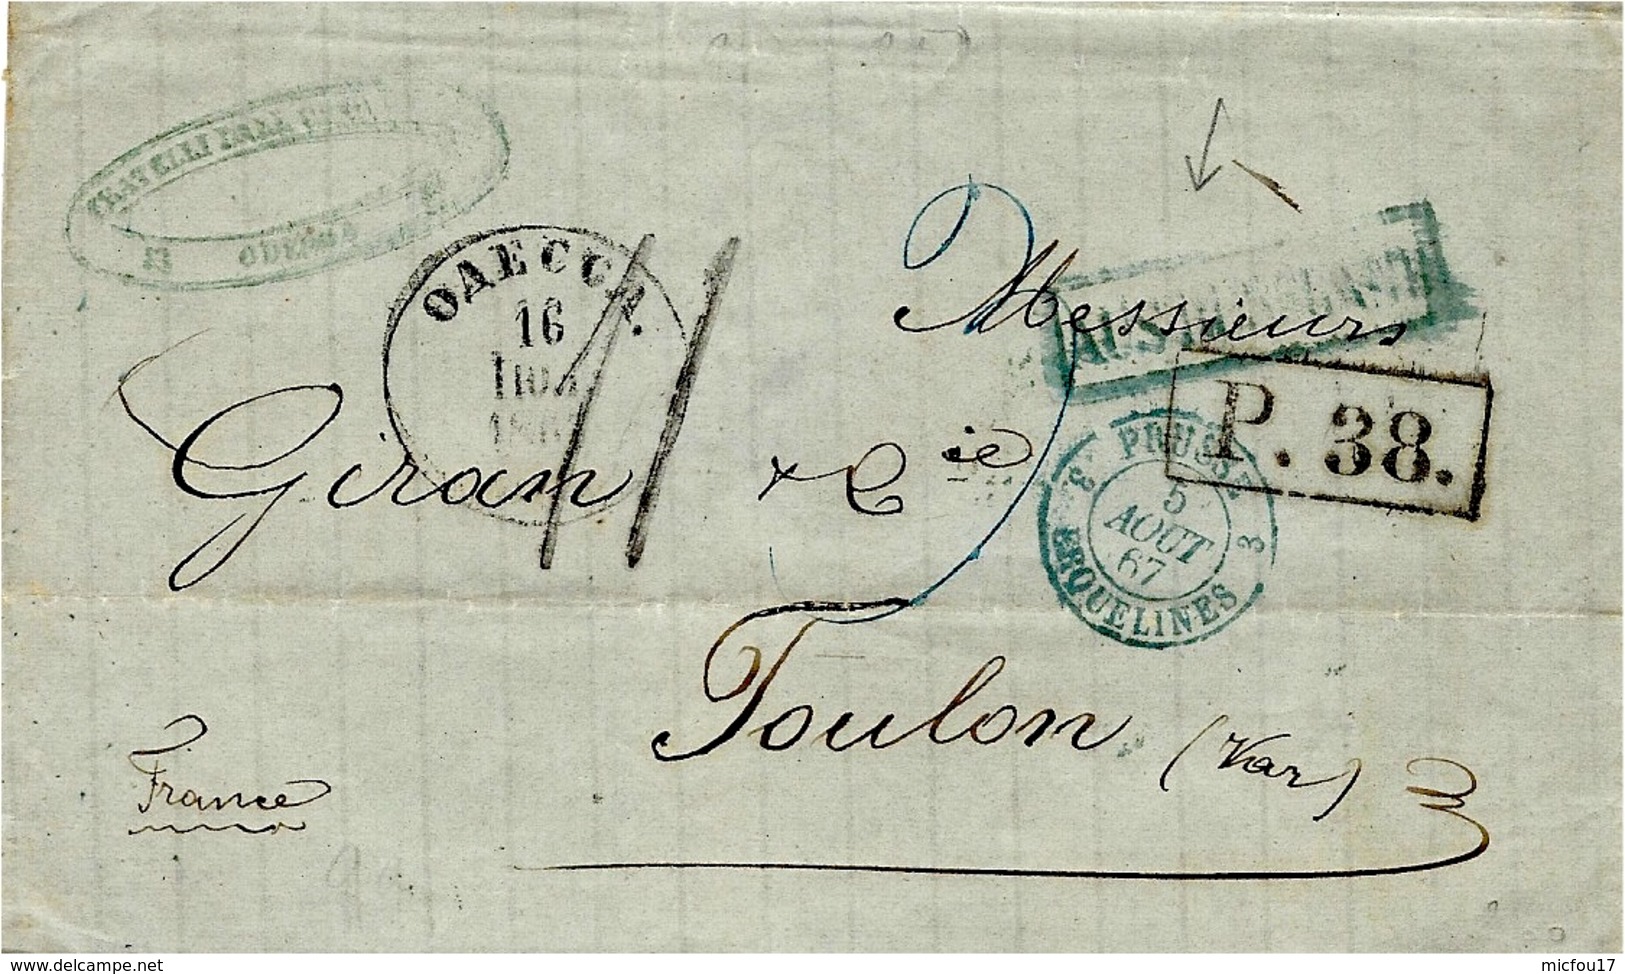 FRATELLI
ODESSA
ОДЕССА.
16
1867
Messieurs
AUS RUSSLAND
P. 38.
Giran & Cie
3 PRUSSE 3
5
AOUT
67
ERQUELINES
Toulon (Var)
France
www.delcampe.net
micfou17